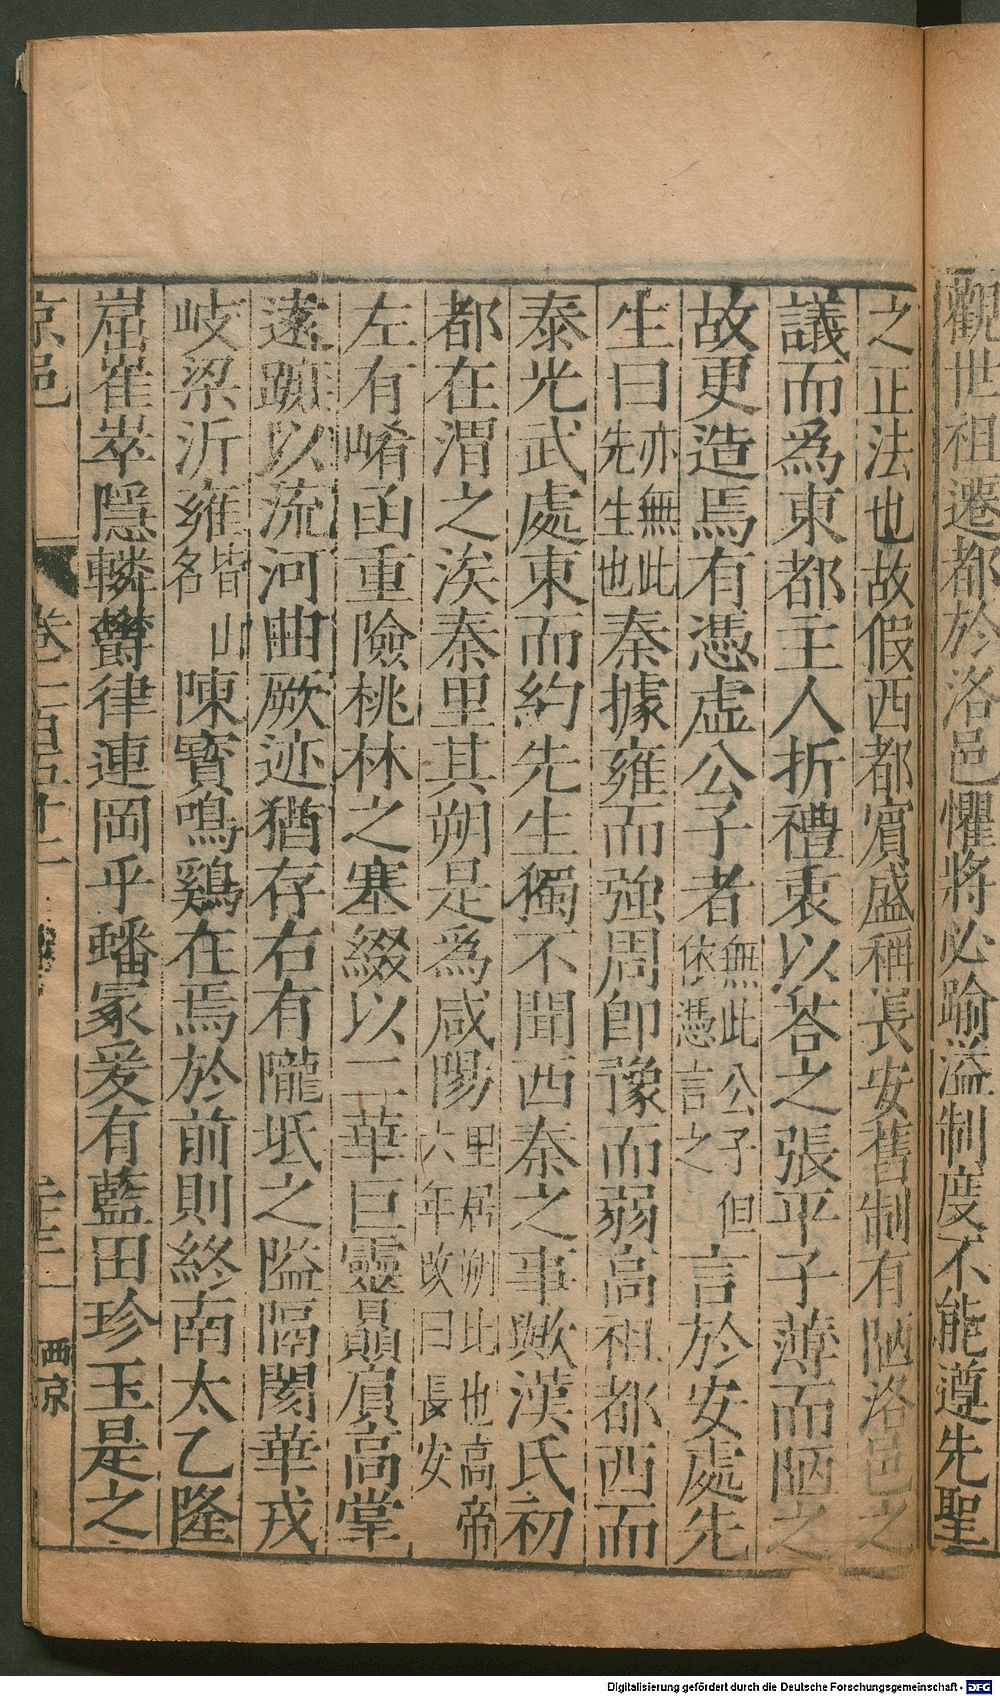 觀世祖遷都於洛邑懼將必踰溢制度不能遵先聖
之正法也故假西都賓盛稱長安舊制有陋洛邑之
議而爲東都主人折禮衷以荅之張平子薄而陋之
故更造焉有憑虛公子者無此公子但依憑言之言於安處先
生曰亦無此先生也秦據雍而強周即豫而弱高祖都西而
泰光武處東而約先生獨不聞西秦之事歟漢氏初
都在渭之涘秦里其朔是爲咸陽里居朔此也高帝六年改曰長安
左有崤函重險桃林之塞綴以二華巨靈贔屓高掌
遠蹠以流河曲厥迹猶存右有隴坻之隘隔閡華戎
岐梁汧雍皆山名陳寶鳴鷄在焉於前則終南太乙隆
崛崔崒隱轔鬱律連岡乎嶓冢爰有藍田珍玉是之
京邑
西京
Digitalisierung gefördert durch die Deutsche Forschungsgemeinschaft - DFG